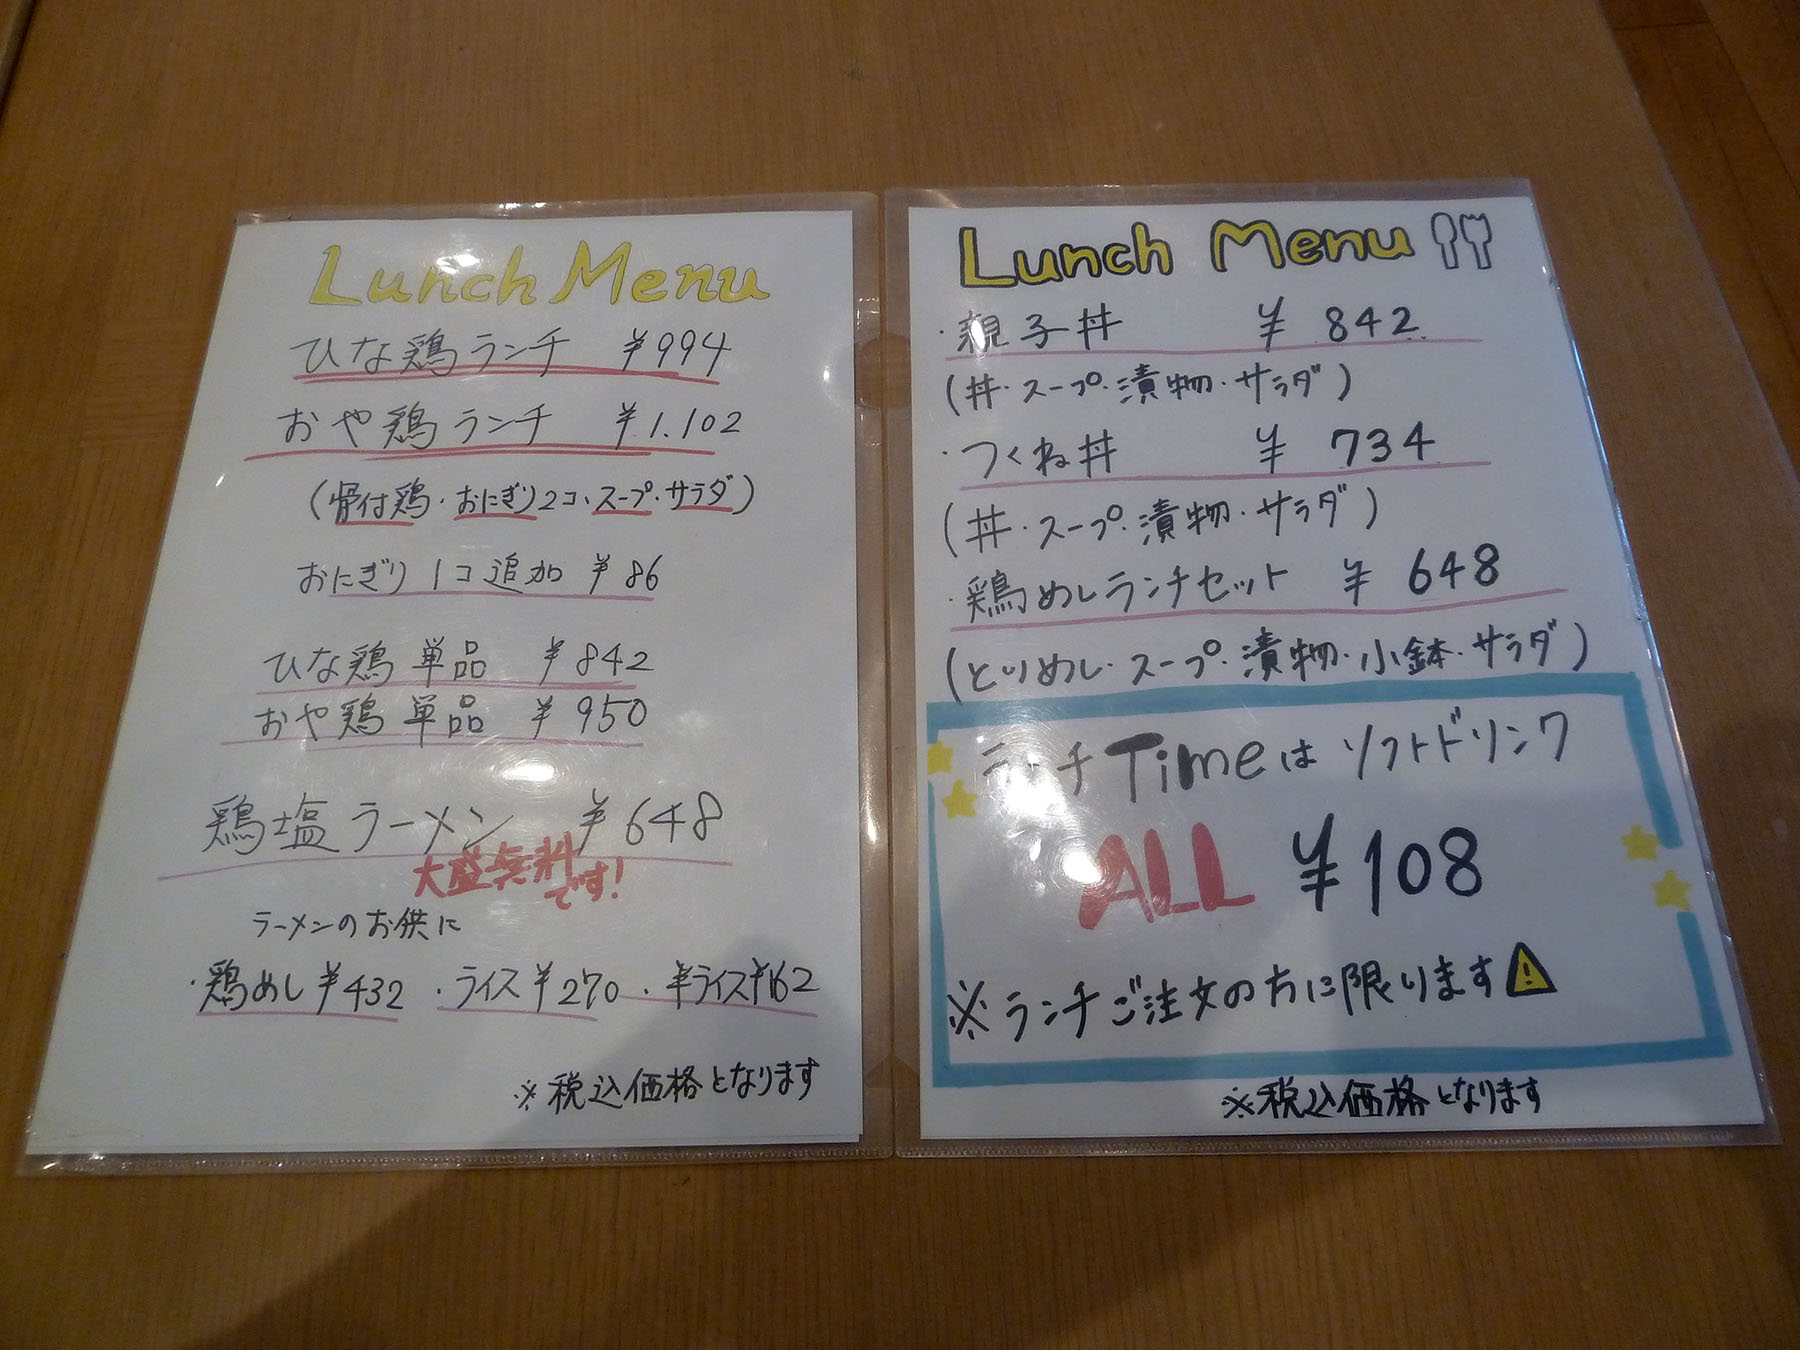 Lunch Menu
ひな鶏ランチ ¥994
おや鶏ランチ ¥1.102
(骨付鶏・おにぎり2コ・スープ・サラダ)
おにぎり 1コ追加 ¥86
ひな鶏 単品 ¥842
おや鶏 単品 ¥950
鶏塩ラーメン ¥648
大盛無料
です!
ラーメンのお供に
・鶏めし¥432 ・ライス¥270 ・半ライス¥162
※税込価格となります
Lunch Menu
・親子丼 ¥842
(丼・スープ・漬物・サラダ)
・つくね丼 ¥734
(丼・スープ・漬物・サラダ)
・鶏めしランチセット ¥648
(とりめし・スープ・漬物・小鉢・サラダ)
ランチTimeはソフトドリンク
ALL ¥108
※ランチご注文の方に限ります
※税込価格となります